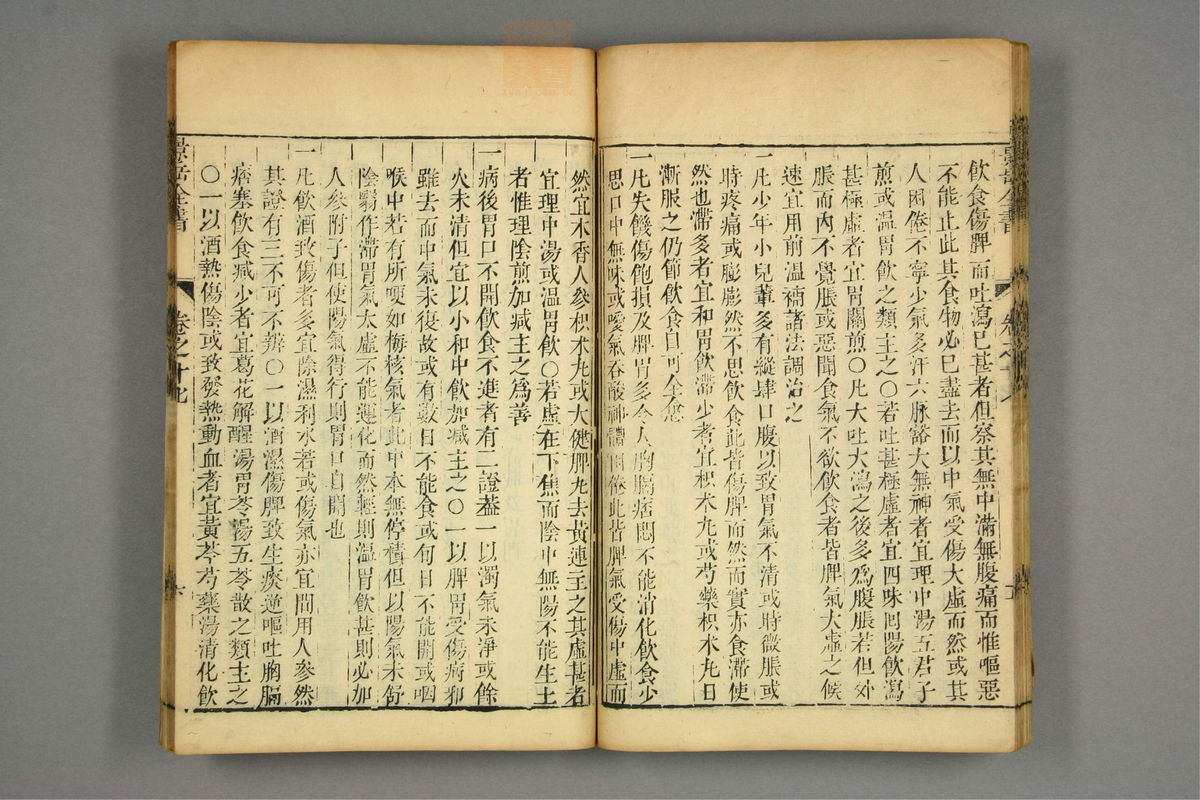 飲食傷脾而吐瀉已甚者但察其無中滿無腹痛而惟嘔惡
不能止此其食物必已盡去而以中氣受傷大虛而然或其
人困倦不寧少氣多汗六脉豁大無神者宜理中湯五君子
煎或溫胃飲之類主之○若吐甚極虛者宜四味囘陽飲瀉
甚極虛者宜胃關煎○凡大吐大瀉之後多爲腹脹若但外
脹而內不覺脹或惡聞食氣不欲飲食者皆脾氣大虛之候
速宜用前溫補諸法調治之
一凡少年小兒輩多有縱肆口腹以致胃氣不清或時微脹或
時疼痛或膨膨然不思飲食此皆傷脾而然而實亦食滯使
然也滯多者宜和胃飲滯少者宜枳术丸或芍藥枳术丸日
漸服之仍節飲食自可全愈
一凡失饑傷飽損及脾胃多令人胸膈痞悶不能消化飲食少
思口中無味或噯氣吞酸神體困倦此皆脾氣受傷中虛而
然宜木香人參枳术丸或大健脾丸去黄連主之其虛甚者
宜理中湯或溫胃飲○若虛在下焦而陰中無陽不能生土
者惟理陰煎加減主之爲善
一病後胃口不開飲食不進者有二證葢一以濁氣未淨或餘
火未清但宜以小和中飲加減主之○一以脾胃受傷病邪
雖去而中氣未復故或有數日不能食或旬日不能開或咽
喉中若有所哽如梅核氣者此中本無停積但以陽氣未舒
陰翳作滯胃氣太虛不能運化而然輕則溫胃飲甚則必加
人參附子但使陽氣得行則胃口自開也
一凡飲酒致傷者多宜除濕利水若或傷氣亦宜間用人參然
其證有三不可不辨○一以酒濕傷脾致生痰逆嘔吐胸膈
痞塞飲食減少者宜葛花解酲湯胃苓湯五苓散之類主之
○一以酒熱傷陰或致發熱動血者宜黃芩芍藥湯清化飲
景岳全書
卷之十七
六